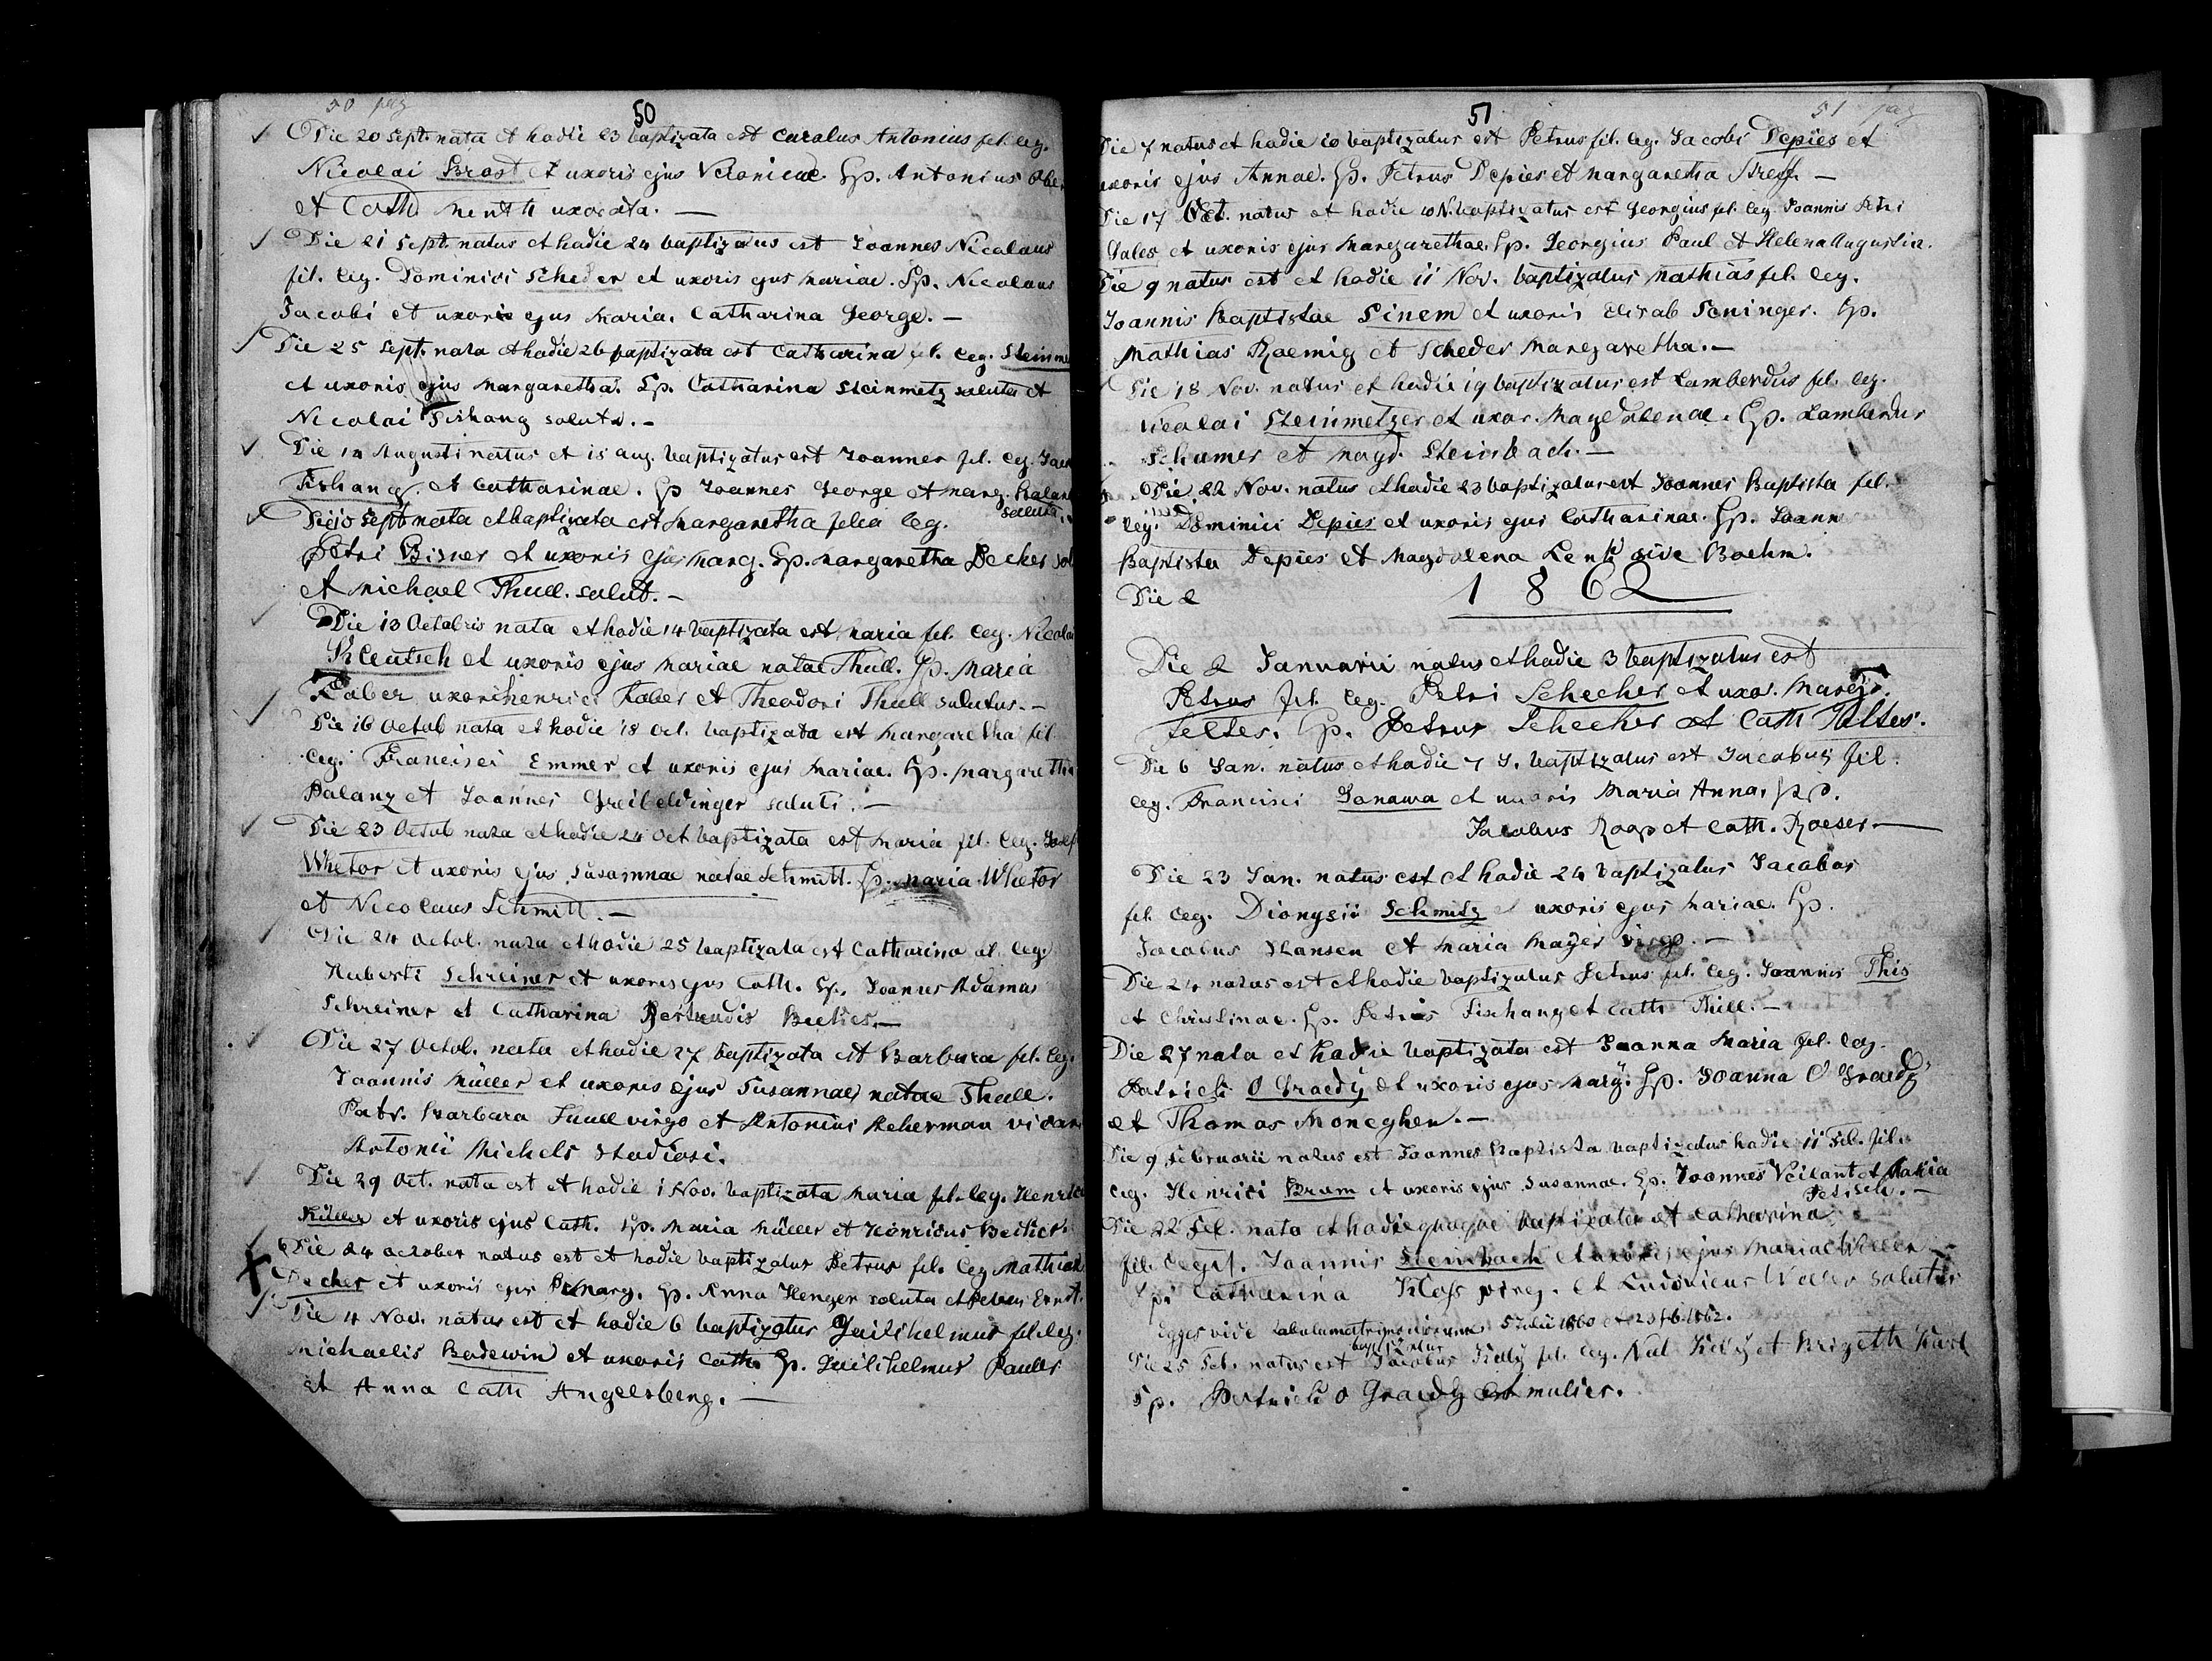 50 pag
50
Die 20 Sept. nata et hodie 23 baptizata est Carolus Antonius fil. leg.
Nicolai Brost et uxoris ejus Veronicae. Sp. Antonius
et Cath Menth uxorata. —
Die 21 Sept. natus et hodie 24 baptizatus est Joannes Nicolaus
fil. leg. Dominici Scheder et uxoris ejus Mariae. Sp. Nicolaus
Jacobi et uxoris ejus Maria. Catharina George. —
Die 25 Sept. nata et hodie 26 baptizata est Catharina fil. leg.
et uxoris ejus Margaretha. Sp. Catharina Steinmetz soluta et
Nicolai Fishang solutd. —
Die 14 Augusti natus et 15 aug. baptizatus est Joannes fil. leg.
Fishang. et Catharinae. Sp Joannes George et marg.
soluta.
Die 10 Sept nata et baptizata est Margaretha filia leg.
Petri Bisner et uxoris ejus Marg. Sp. Margaretha Decker
et Michael Thull. solut. —
Die 13 Octobris nata et hodie 14 baptizata est Maria fil. leg. Nicolai
Kleutsch et uxoris ejus Mariae natae Thull. Sp. Maria
Faber uxor henrici Faber et Theodori Thull solutus. —
Die 16 Octob nata et hodie 18 Oct. baptizata est Margaretha fil
leg. Francisci Emmer et uxoris ejus Mariae. Sp. Margaretha
Palanz et Joannes Greibeldinger soluti. —
Die 23 Octob nata et hodie 24 Oct baptizata est Maria fil. leg. Josef
Whetor et uxoris ejus Susannae natae Schmitt. Sp. Maria Whetor
et Nicolaus Schmitt. —
Die 24 Octob. nata et hodie 25 baptizata est Catharina fil. leg.
Huberti Schreiner et uxoris ejus Cath. Sp. Joannes Adamus
Schreiner et Catharina Gertrudis —
Die 27 Octob. nata et hodie 27 baptizata est Barbara fil. leg.
Joannis Müller et uxoris ejus Susannae natae Thull.
Patr. Barbara Thull virgo et Antonius Acherman
Antonii Michels studiosi.
Die 29 Oct. nata est et hodie 1 Nov. baptizata Maria fil. leg. Henrici
Müller et uxoris ejus Cath. Sp. Maria Müller et Henricus
Die 24 October natus est et hodie baptizatus Petrus fil. leg Mathiae
Decher et uxoris ejus Marg. Sp. Anna Henger soluta et
Die 4 Nov. natus est et hodie 6 baptizatus Guilihelmus fil. leg.
Michaelis Bodewin et uxoris Cath. Sp. Guilihelmus Pauls
et Anna Cath Angelsberg. —
51 pag
51
Die 7 natus et hodie 10 baptizatus est Petrus fil. leg. Jacobi Depies et
uxoris ejus Annae. Sp. Petrus Depies et Margaretha Streff. —
Die 17 Oct. natus et hodie 10 N. baptizatus est Georgius fil. leg. Joannis Petri
Dales et uxoris ejus Margarethae. Sp. Georgius Paul et Helena Augustin.
Die 9 natus est et hodie 11 Nov. baptizatus Mathias fil. leg.
Joannis Baptistae Sinem et uxoris Elisab Seninger. Sp.
Mathias Roemig et Scheder Margaretha. —
Die 18 Nov. natus et hodie 19 baptizatus est Lamberdus fil. leg.
Nicolai Steinmetzer et uxor. Magdalenae. Sp. Lamberdus
Schumer et Magd. Steinbach. —
Die 22 Nov. natus et hodie 23 baptizatus est Joannes Baptista fil.
leg. Dominici Depies et uxoris ejus Catharinae. Sp. Joann
Baptista Depies et Magdalena Lenk sive Boehm.
Die 2
1862
Die 2 Januarii natus et hodie 3 baptizatus est
Petrus fil. leg. Petri Schecher et uxor. Marg.
Feltes. Sp. Petrus Schecher et Cath Feltes.
Die 6 Jan. natus et hodie 7 J. baptizatus est Jacobus fil.
leg. Francisci Janawa et uxoris Maria Anna. Sp.
Jacobus Roap et Cath. Roeser —
Die 23 Jan. natus est et hodie 24 baptizatus Jacobus
fil. leg. Dionysii Schmitz et uxoris ejus Mariae. Sp.
Jacobus Hansen et Maria Mayer virgo. —
Die 24 natus est et hodie baptizatus Petrus fil. leg. Joannis This
et Christinae. Sp. Petrus Fishang et Cath Thill. —
Die 27 nata et hodie baptizata est Joanna Maria fil. leg.
Patricii O Graedy et uxoris ejus Mary. Sp. Joanna O Graedy
et Thomas Moneghen. —
Die 9 Februarii natus est Joannes Baptista baptizatus hodie 11 Feb. fil.
leg. Henrici Brum et uxoris ejus Susannae. Sp. Joannes Veilant et Maria
Petisch. —
Die 22 Feb. nata et hodie quoque baptizata est Catharina
fil. legit. Joannis Steinbach et uxoris ejus Mariae Weller —
Sp. Catharina Klass virg. et Ludovicus Weller solutus
vide tabulam matrimoniorum 5 Julii 1860 et 23 feb. 1862.
baptizatus
Die 25 Feb. natus est Jacobus Kelly fil. leg. Nat Kelly et Brizeth
Sp. Patricii O Graedy est mulier.